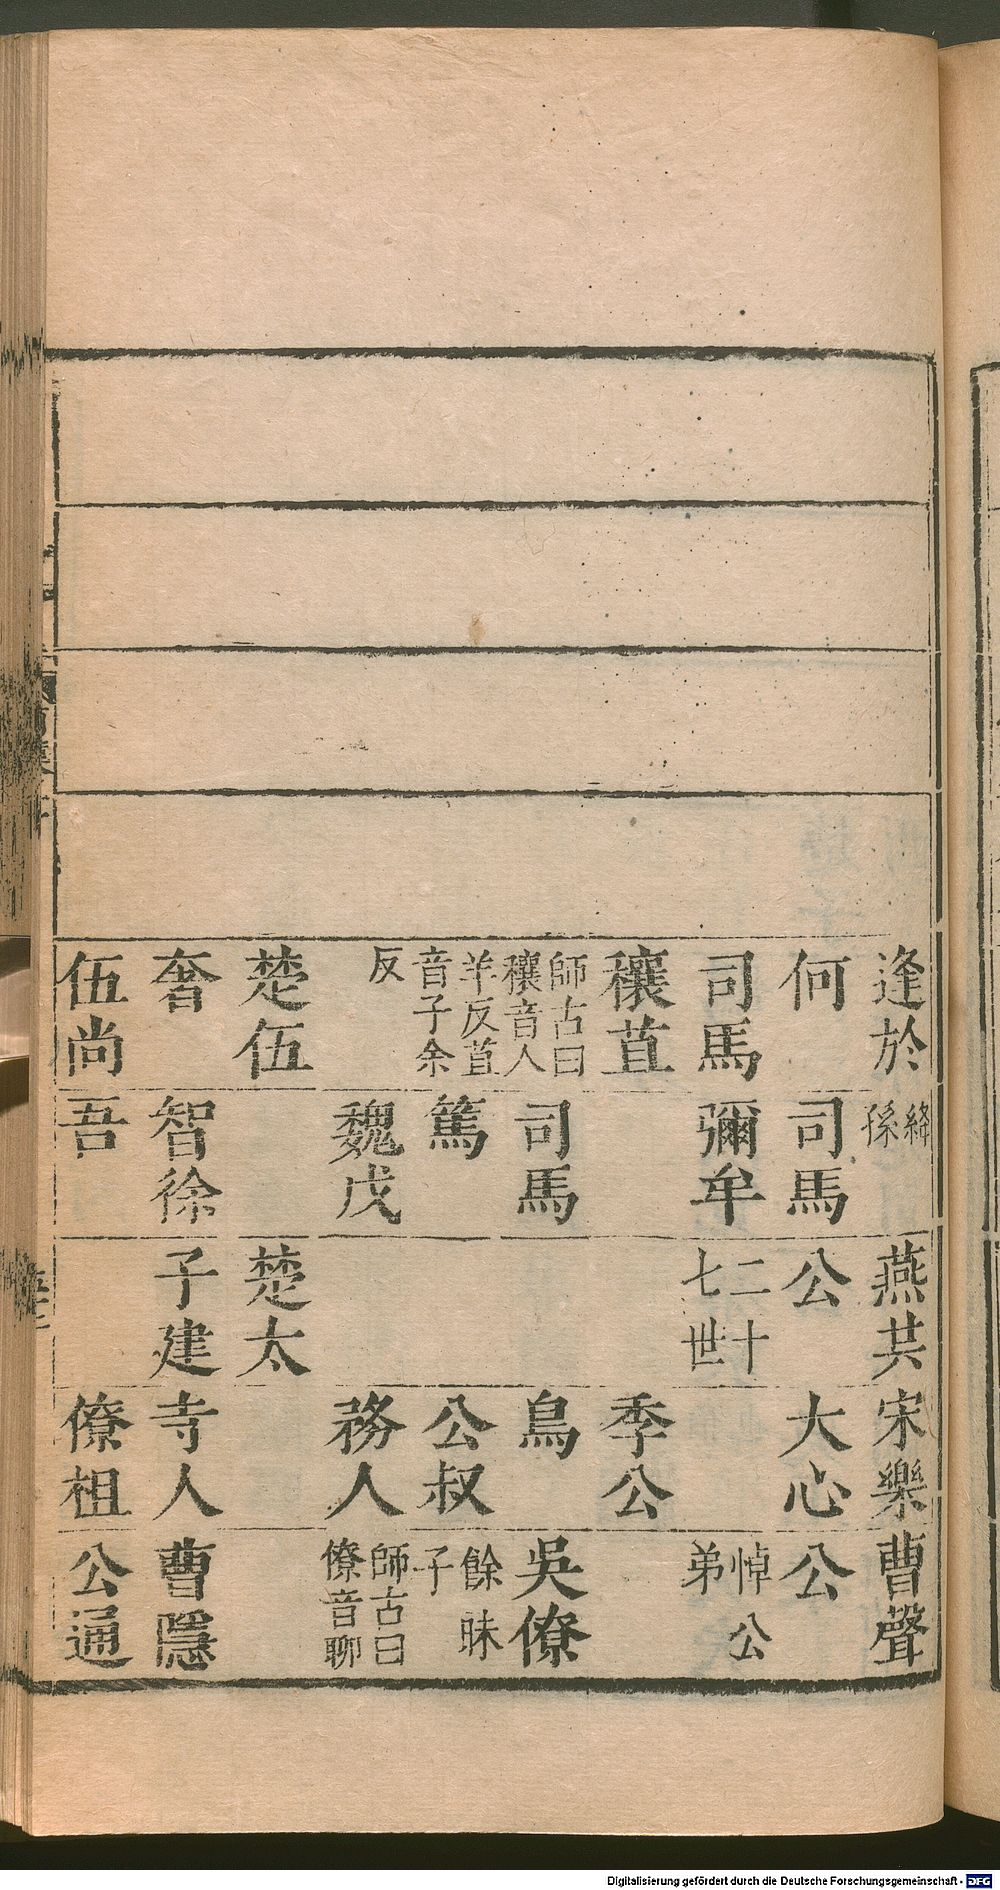 逢於 絳孫 燕共 宋樂 曹聲
何 司馬 公 大心 公
司馬 彌牟 二十七世 悼公弟
穰苴 季公
師古曰穰音人 司馬 鳥 吳僚
羊反苴音子余 篤 公叔 餘昧子
反 魏戊 務人 師古曰僚音聊
楚伍 楚太
奢 智徐 子建 寺人 曹隱
伍尚 吾 僚祖 公通
Digitalisierung gefördert durch die Deutsche Forschungsgemeinschaft - DFG